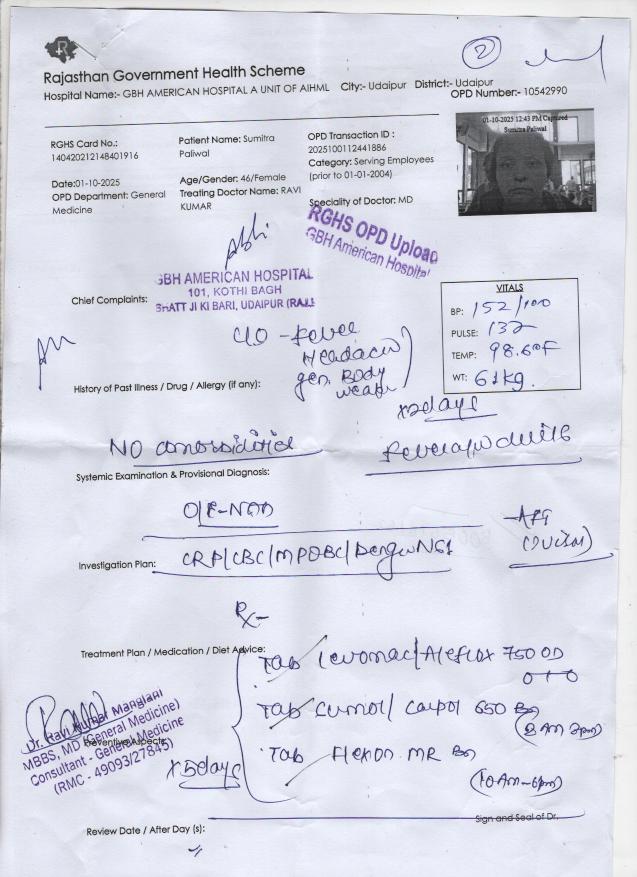 2
R
Rajasthan Government Health Scheme
Hospital Name:- GBH AMERICAN HOSPITAL A UNIT OF AIHML City:- Udaipur District:- Udaipur
OPD Number:- 10542990
01-10-2025 12:43 PM Captured
Sumitra Paliwal
RGHS Card No.:
140420212148401916
Patient Name: Sumitra
Paliwal
OPD Transaction ID :
2025100112441886
Category: Serving Employees
(prior to 01-01-2004)
Date:01-10-2025
OPD Department: General
Medicine
Age/Gender: 46/Female
Treating Doctor Name: RAVI
KUMAR
Speciality of Doctor: MD
RGHS OPD Upload
GBH American Hospital
GBH AMERICAN HOSPITAL
101, KOTHI BAGH
BHATT JI KI BARI, UDAIPUR (RAJ.)
Chief Complaints:
VITALS
BP: 152/100
PULSE: 132
TEMP: 98.60F
WT: 61kg.
C/O - Fever
Headache
gen. Body
weak
x2days
History of Past Illness / Drug / Allergy (if any):
NO comorbidities
Systemic Examination & Provisional Diagnosis:
O/E-NAD
Investigation Plan:
CRP/CBC/MPQBC/Dengu NS1
Rx-
Treatment Plan / Medication / Diet Advice:
Tab Levomac/Aleflox 750 OD
Tab Cumol/Calpol 650
Tab Flexon MR
(10Am-6pm)
x5days
Dr. Ravi Kumar Manglani
MBBS, MD (General Medicine)
Consultant - General Medicine
(RMC - 49093/27845)
Preventive Aspects:
Sign and Seal of Dr.
Review Date / After Day (s):